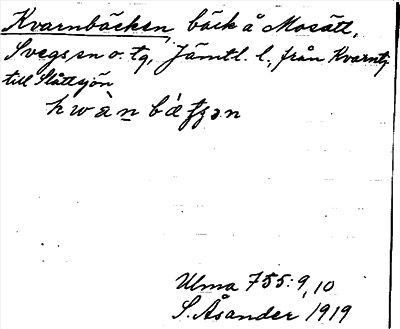 Kvarnbäcken, bäck å Mosätt,
Svegs sn o. tg, Jämtl. l., från Kvarntj.
till Slåttsjön
Ulma 755:9,10
S. Åsander 1919